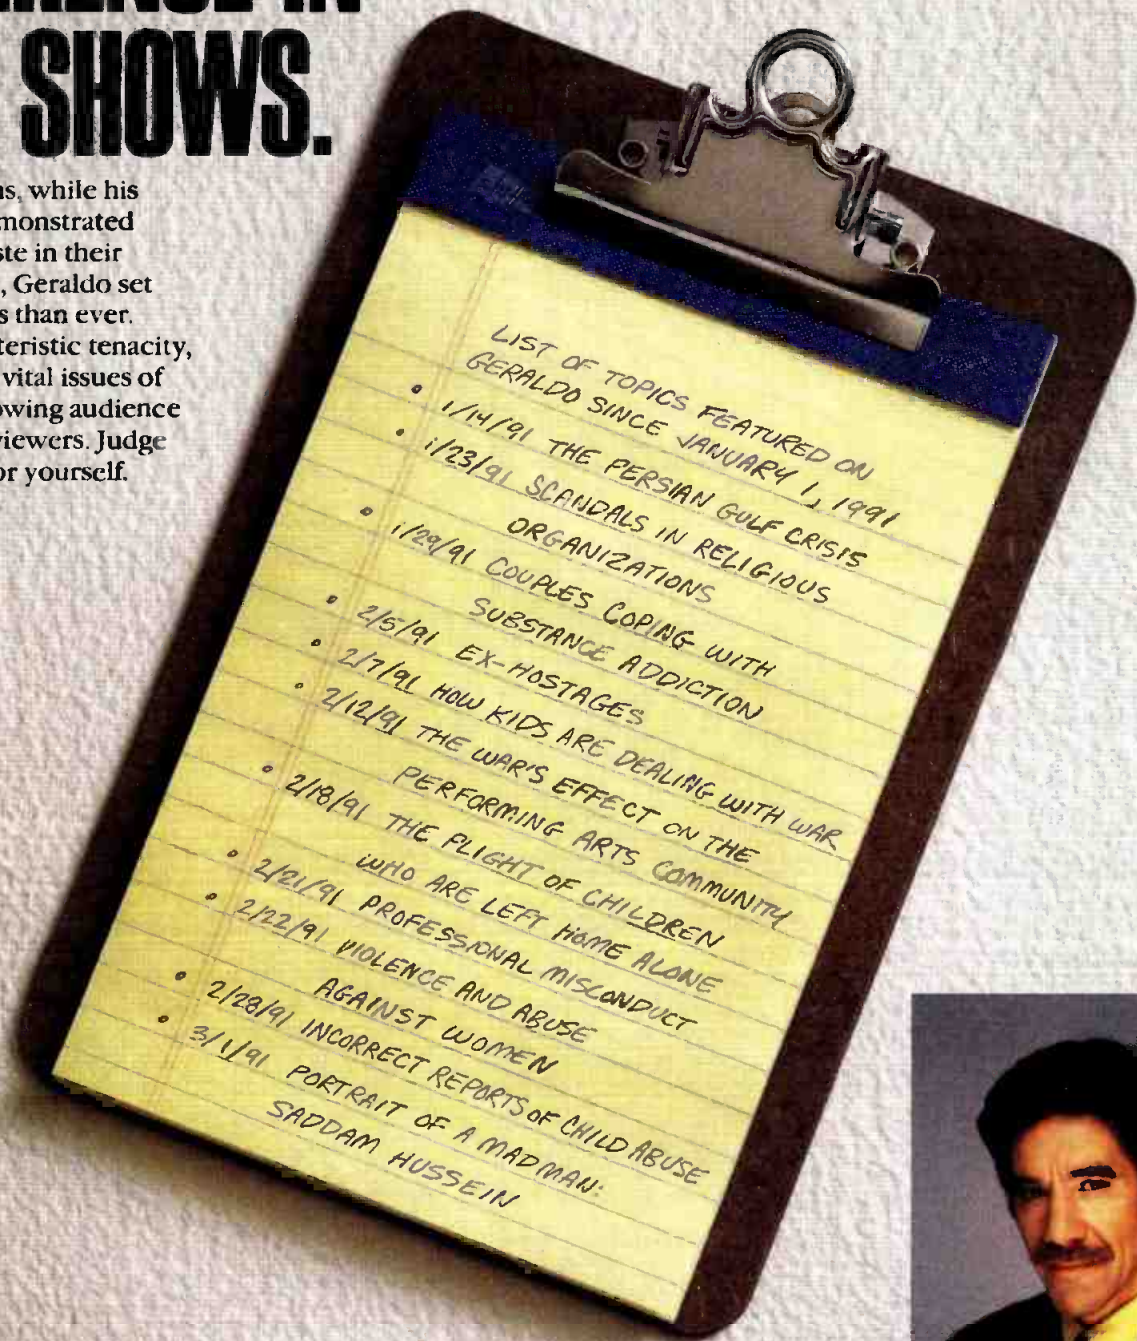 SHOWS.
ns, while his
monstrated
ste in their
, Geraldo set
s than ever.
teristic tenacity,
vital issues of
owing audience
viewers. Judge
or yourself.
LIST OF TOPICS FEATURED ON
GERALDO SINCE JANUARY 1, 1991
• 1/14/91 THE PERSIAN GULF CRISIS
• 1/23/91 SCANDALS IN RELIGIOUS
ORGANIZATIONS
• 1/29/91 COUPLES COPING WITH
SUBSTANCE ADDICTION
• 2/5/91 EX-HOSTAGES
• 2/7/91 HOW KIDS ARE DEALING WITH WAR
• 2/12/91 THE WAR'S EFFECT ON THE
PERFORMING ARTS COMMUNITY
• 2/18/91 THE PLIGHT OF CHILDREN
WHO ARE LEFT HOME ALONE
• 2/21/91 PROFESSIONAL MISCONDUCT
• 2/22/91 VIOLENCE AND ABUSE
AGAINST WOMEN
• 2/28/91 INCORRECT REPORTS OF CHILD ABUSE
• 3/1/91 PORTRAIT OF A MADMAN:
SADDAM HUSSEIN